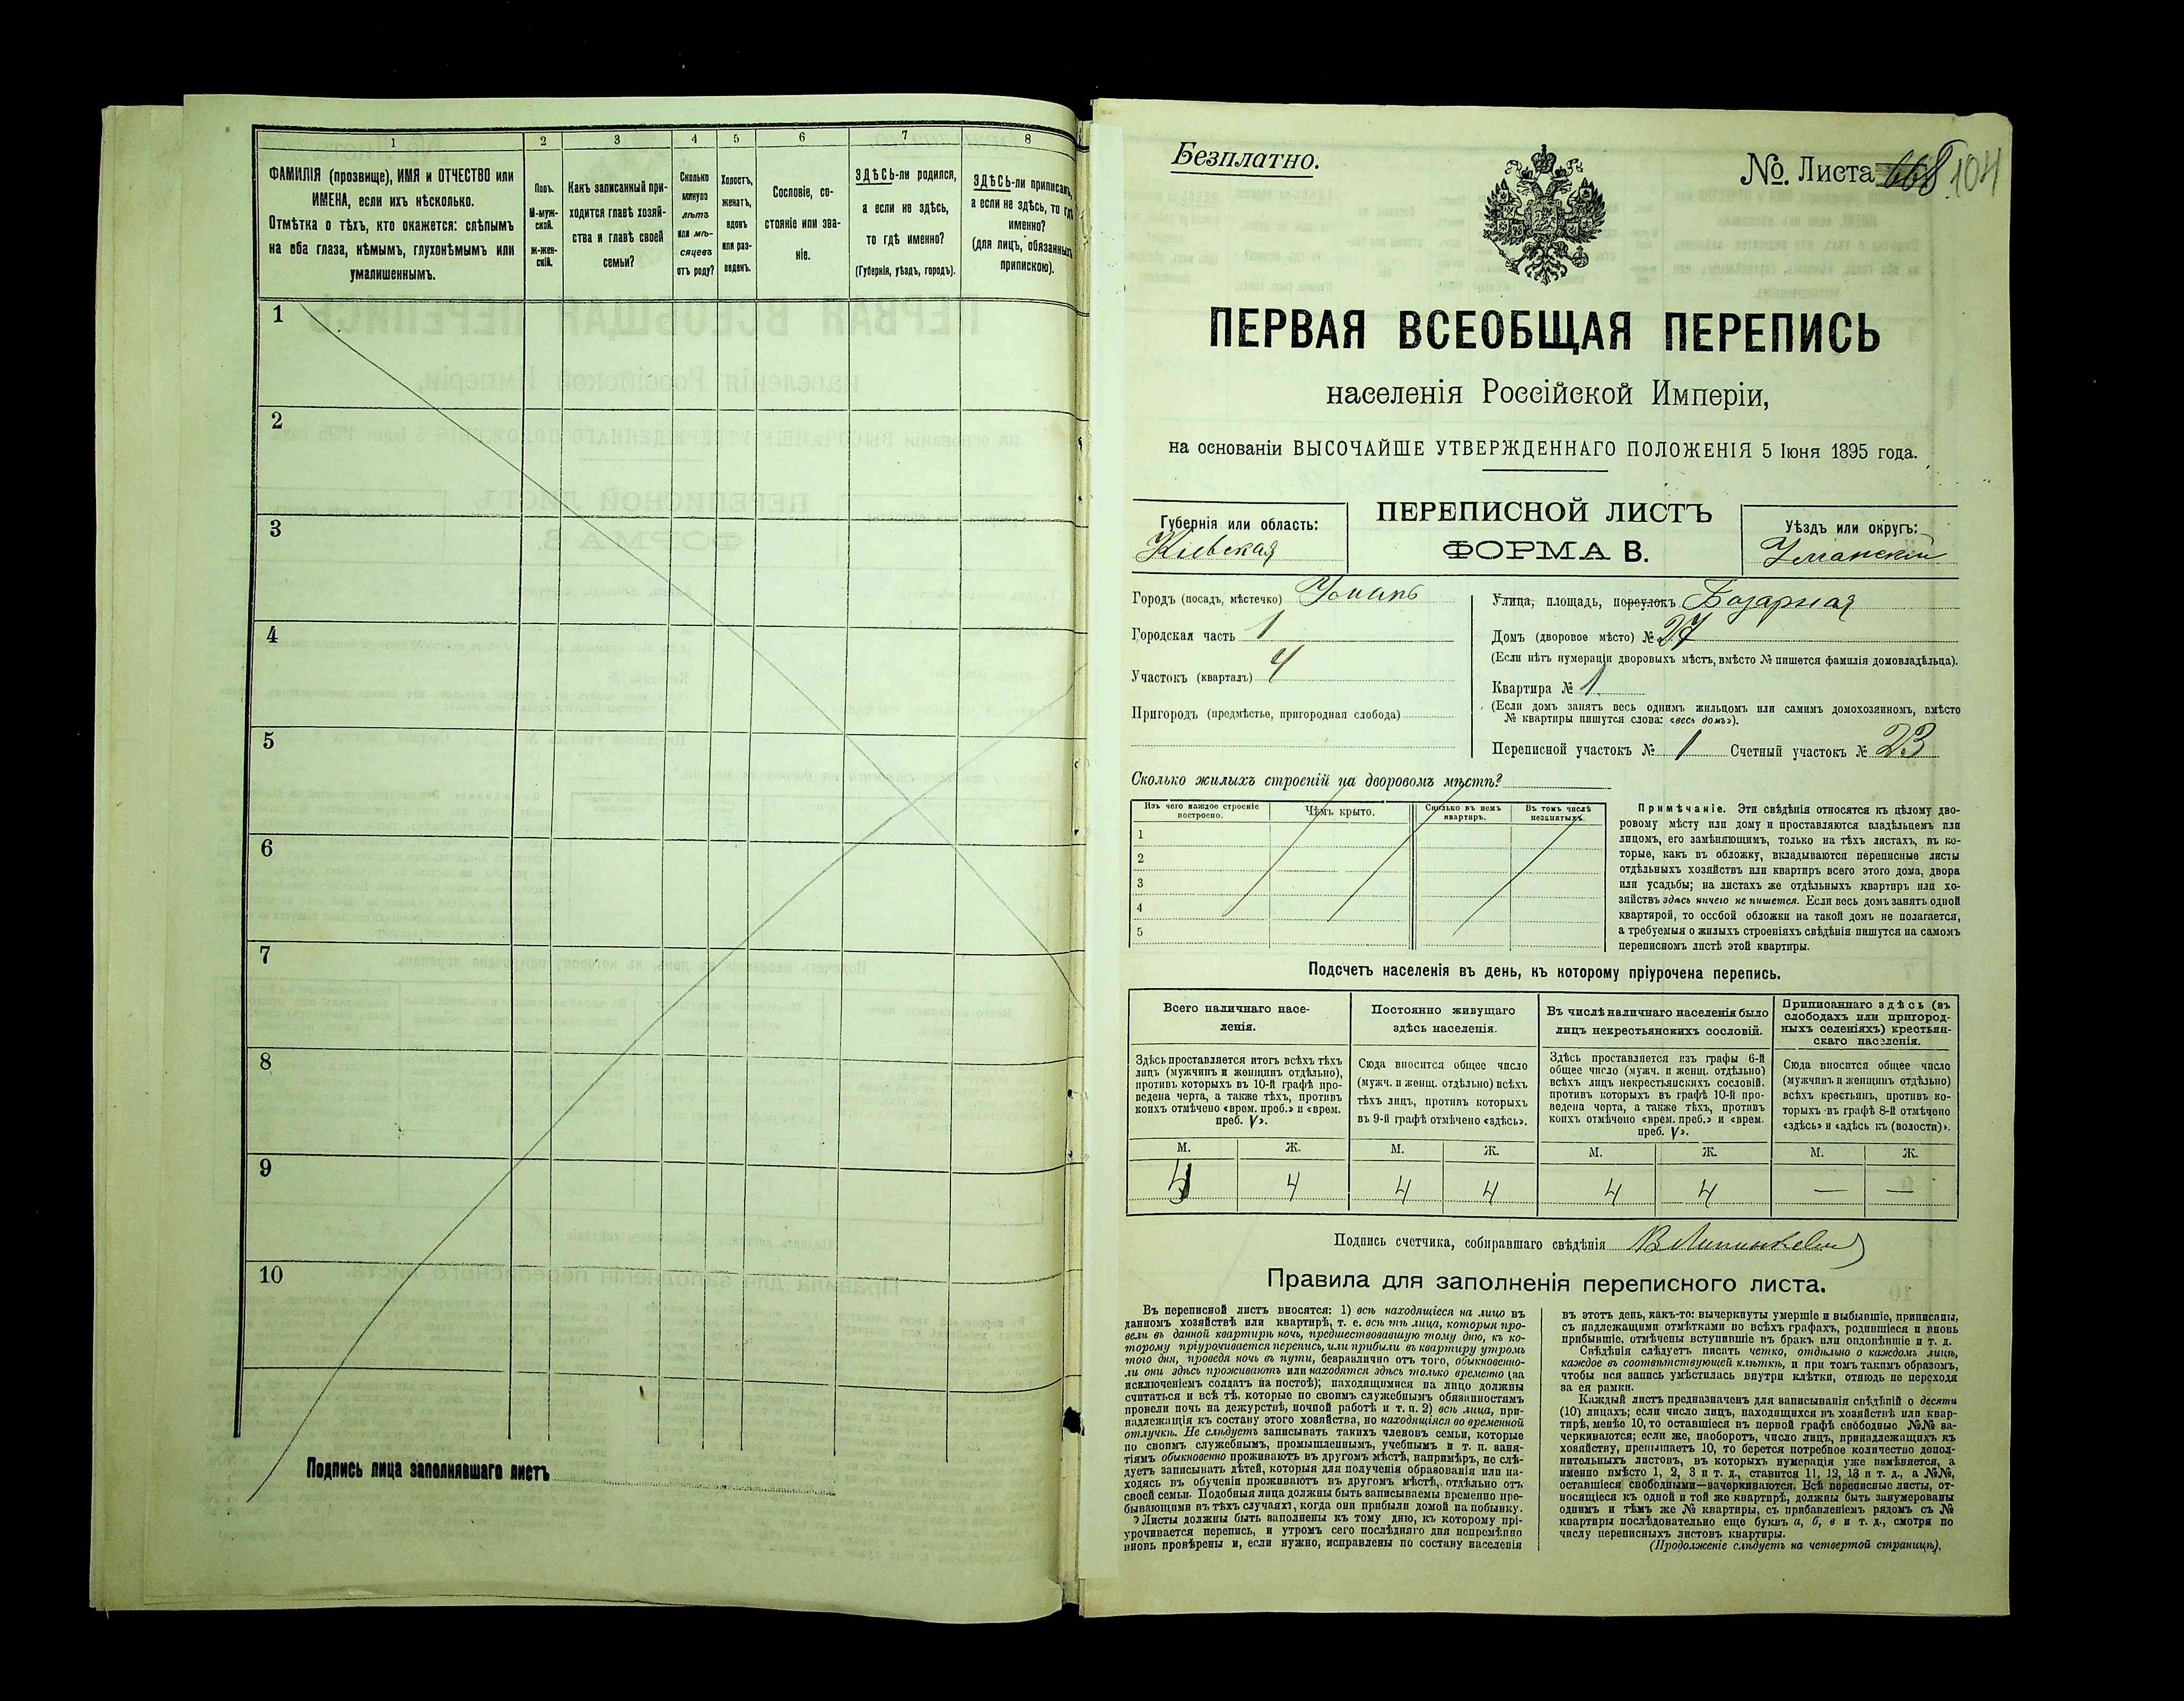 1 2 3 4 5 6 7 8
ФАМИЛІЯ (прозвище), ИМЯ и ОТЧЕСТВО или
ИМЕНА, если ихъ нѣсколько.
Отмѣтка о тѣхъ, кто окажется: слѣпымъ
на оба глаза, нѣмымъ, глухонѣмымъ или
умалишеннымъ.
Полъ.
М-муж-
ской.
Ж-жен-
скій.
Какъ записанный при-
ходится главѣ хозяй-
ства и главѣ своей
семьи?
Сколько
минуло
лѣтъ
или мѣ-
сяцевъ
отъ роду?
Холостъ,
женатъ,
вдовъ
или раз-
веденъ.
Сословіе, со-
стояніе или зва-
ніе.
ЗДѢСЬ-ли родился,
а если не здѣсь,
то гдѣ именно?
(Губернія, уѣздъ, городъ).
ЗДѢСЬ-ли приписанъ,
а если не здѣсь, то гдѣ
именно?
(для лицъ, обязанныхъ
припискою).
1
2
3
4
5
6
7
8
9
10
Подпись лица заполнявшаго листъ
Безплатно.
№. Листа 668 104
ПЕРВАЯ ВСЕОБЩАЯ ПЕРЕПИСЬ
населенія Россійской Имперіи,
на основаніи ВЫСОЧАЙШЕ УТВЕРЖДЕННАГО ПОЛОЖЕНІЯ 5 Іюня 1895 года.
Губернія или область:
Кіевская
ПЕРЕПИСНОЙ ЛИСТЪ
ФОРМА В.
Уѣздъ или округъ:
Уманскій
Городъ (посадъ, мѣстечко) Умань
Городская часть 1
Участокъ (кварталъ) 4
Пригородъ (предмѣстье, пригородная слобода)
Улица, площадь, переулокъ Базарная
Домъ (дворовое мѣсто) № 27
(Если нѣтъ нумераціи дворовыхъ мѣстъ, вмѣсто № пишется фамилія домовладѣльца).
Квартира № 1
(Если домъ занятъ весь однимъ жильцомъ или самимъ домохозяиномъ, вмѣсто
№ квартиры пишутся слова: «весь домъ»).
Переписной участокъ № 1 Счетный участокъ № 23
Сколько жилыхъ строеній на дворовомъ мѣстѣ?
Изъ чего каждое строеніе
построено.
Чѣмъ крыто.
Сколько въ немъ
квартиръ.
Въ томъ числѣ
незанятыхъ.
1
2
3
4
5
Примѣчаніе. Эти свѣдѣнія относятся къ цѣлому дво-
ровому мѣсту или дому и проставляются владѣльцемъ или
лицомъ, его замѣняющимъ, только на тѣхъ листахъ, въ ко-
торые, какъ въ обложку, вкладываются переписные листы
отдѣльныхъ хозяйствъ или квартиръ всего этого дома, двора
или усадьбы; на листахъ же отдѣльныхъ квартиръ или хо-
зяйствъ здѣсь ничего не пишется. Если весь домъ занятъ одной
квартирой, то особой обложки на такой домъ не полагается,
а требуемыя о жилыхъ строеніяхъ свѣдѣнія пишутся на самомъ
переписномъ листѣ этой квартиры.
Подсчетъ населенія въ день, къ которому пріурочена перепись.
Всего наличнаго насе-
ленія.
Здѣсь проставляется итогъ всѣхъ тѣхъ
лицъ (мужчинъ и женщинъ отдѣльно),
противъ которыхъ въ 10-й графѣ про-
ведена черта, а также тѣхъ, противъ
коихъ отмѣчено «врем. преб.» и «врем.
преб. V».
Постоянно живущаго
здѣсь населенія.
Сюда вносится общее число
(мужч. и женщ. отдѣльно) всѣхъ
тѣхъ лицъ, противъ которыхъ
въ 9-й графѣ отмѣчено «здѣсь».
Въ числѣ наличнаго населенія было
лицъ некрестьянскихъ сословій.
Здѣсь проставляется изъ графы 6-й
общее число (мужч. и женщ. отдѣльно)
всѣхъ лицъ некрестьянскихъ сословій.
противъ которыхъ въ графѣ 10-й про-
ведена черта, а также тѣхъ, противъ
коихъ отмѣчено «врем. преб.» и «врем.
преб. V».
Приписаннаго здѣсь (въ
слободахъ или пригород-
ныхъ селеніяхъ) крестьян-
скаго населенія.
Сюда вносится общее число
(мужчинъ и женщинъ отдѣльно)
всѣхъ крестьянъ, противъ ко-
торыхъ въ графѣ 8-й отмѣчено
«здѣсь» и «здѣсь къ (волости)».
М. Ж. М. Ж. М. Ж. М. Ж.
4 4 4 4 4 4 — —
Подпись счетчика, собиравшаго свѣдѣнія
Правила для заполненія переписного листа.
Въ переписной листъ вносятся: 1) всѣ находящіеся на лицо въ
данномъ хозяйствѣ или квартирѣ, т. е. всѣ тѣ лица, которыя про-
вели въ данной квартирѣ ночь, предшествовавшую тому дню, къ ко-
торому пріурочивается перепись, или прибыли въ квартиру утромъ
того дня, проведя ночь въ пути, безразлично отъ того, обыкновенно-
ли они здѣсь проживаютъ или находятся здѣсь только временно (за
исключеніемъ солдатъ на постоѣ); находящимися на лицо должны
считаться и всѣ тѣ, которые по своимъ служебнымъ обязанностямъ
провели ночь на дежурствѣ, ночной работѣ и т. п. 2) всѣ лица, при-
надлежащія къ составу этого хозяйства, но находящіяся во временной
отлучкѣ. Не слѣдуетъ записывать такихъ членовъ семьи, которые
по своимъ служебнымъ, промышленнымъ, учебнымъ и т. п. заня-
тіямъ обыкновенно проживаютъ въ другомъ мѣстѣ, напримѣръ, не слѣ-
дуетъ записывать дѣтей, которыя для полученія образованія или на-
ходясь въ обученіи проживаютъ въ другомъ мѣстѣ, отдѣльно отъ
своей семьи. Подобныя лица должны быть записываемы временно пре-
бывающими въ тѣхъ случаяхъ, когда они прибыли домой на побывку.
Листы должны быть заполнены къ тому дню, къ которому прі-
урочивается перепись, и утромъ сего послѣдняго дня непремѣнно
вновь провѣрены и, если нужно, исправлены по составу населенія
въ этотъ день, какъ-то: вычеркнуты умершіе и выбывшіе, приписаны,
съ надлежащими отмѣтками во всѣхъ графахъ, родившіеся и вновь
прибывшіе, отмѣчены вступившіе въ бракъ или овдовѣвшіе и т. д.
Свѣдѣнія слѣдуетъ писать четко, отдѣльно о каждомъ лицѣ,
каждое въ соотвѣтствующей клѣткѣ, и при томъ такимъ образомъ,
чтобы вся запись умѣстилась внутри клѣтки, отнюдь не переходя
за ея рамки.
Каждый листъ предназначенъ для записыванія свѣдѣній о десяти
(10) лицахъ; если число лицъ, находящихся въ хозяйствѣ или квар-
тирѣ, менѣе 10, то оставшіеся въ первой графѣ свободные №№ за-
черкиваются; если же, наоборотъ, число лицъ, принадлежащихъ къ
хозяйству, превышаетъ 10, то берется потребное количество допол-
нительныхъ листовъ, въ которыхъ нумерація уже измѣняется, а
именно вмѣсто 1, 2, 3 и т. д., ставится 11, 12, 13 и т. д., а №№,
оставшіеся свободными—зачеркиваются. Всѣ переписные листы, от-
носящіеся къ одной и той же квартирѣ, должны быть занумерованы
однимъ и тѣмъ же № квартиры, съ прибавленіемъ рядомъ съ №
квартиры послѣдовательно еще буквъ а, б, в и т. д., смотря по
числу переписныхъ листовъ квартиры.
(Продолженіе слѣдуетъ на четвертой страницѣ).